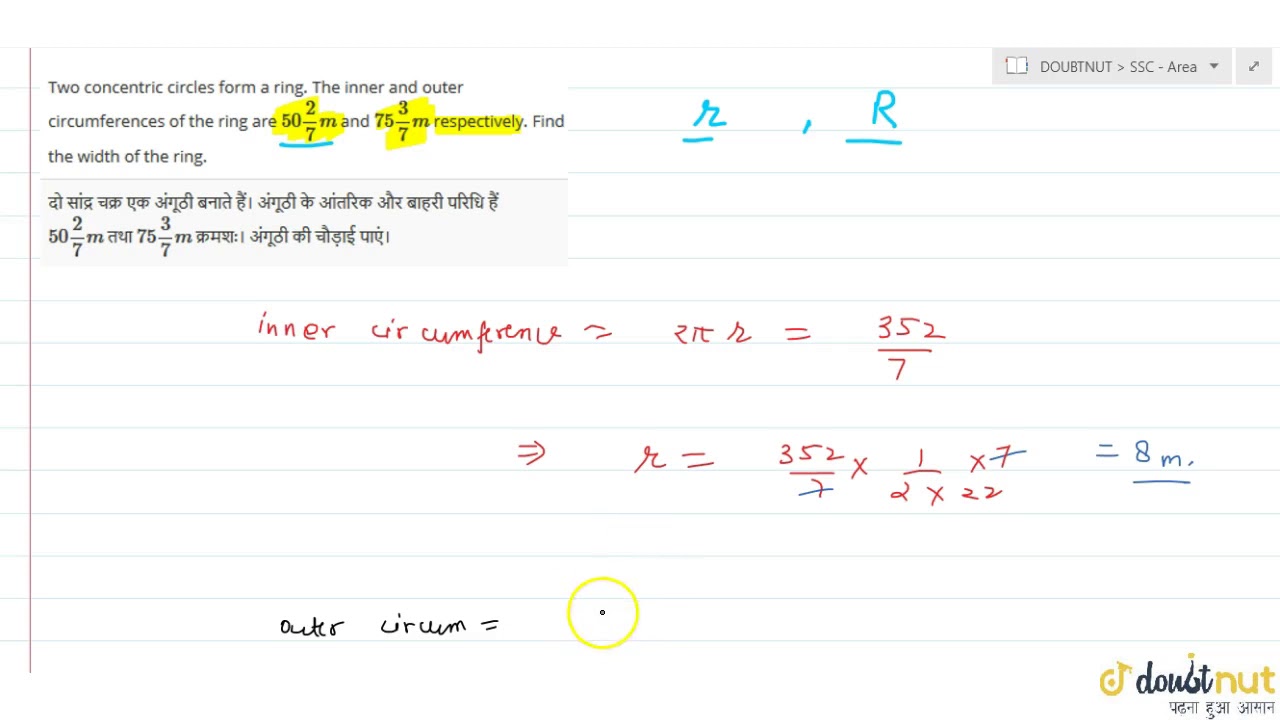 DOUBTNUT > SSC - Area
Two concentric circles form a ring. The inner and outer
circumferences of the ring are 50 2/7 m and 75 3/7 m respectively. Find
the width of the ring.
दो सांद्र चक्र एक अंगूठी बनाते हैं। अंगूठी के आंतरिक और बाहरी परिधि हैं
50 2/7 m तथा 75 3/7 m क्रमशः। अंगूठी की चौड़ाई पाएं।
r , R
inner circumference = 2π r = 352/7
⇒ r = 352/7 × 1/(2 × 22) × 7 = 8 m.
outer circum =
doubtnut
पढ़ना हुआ आसान